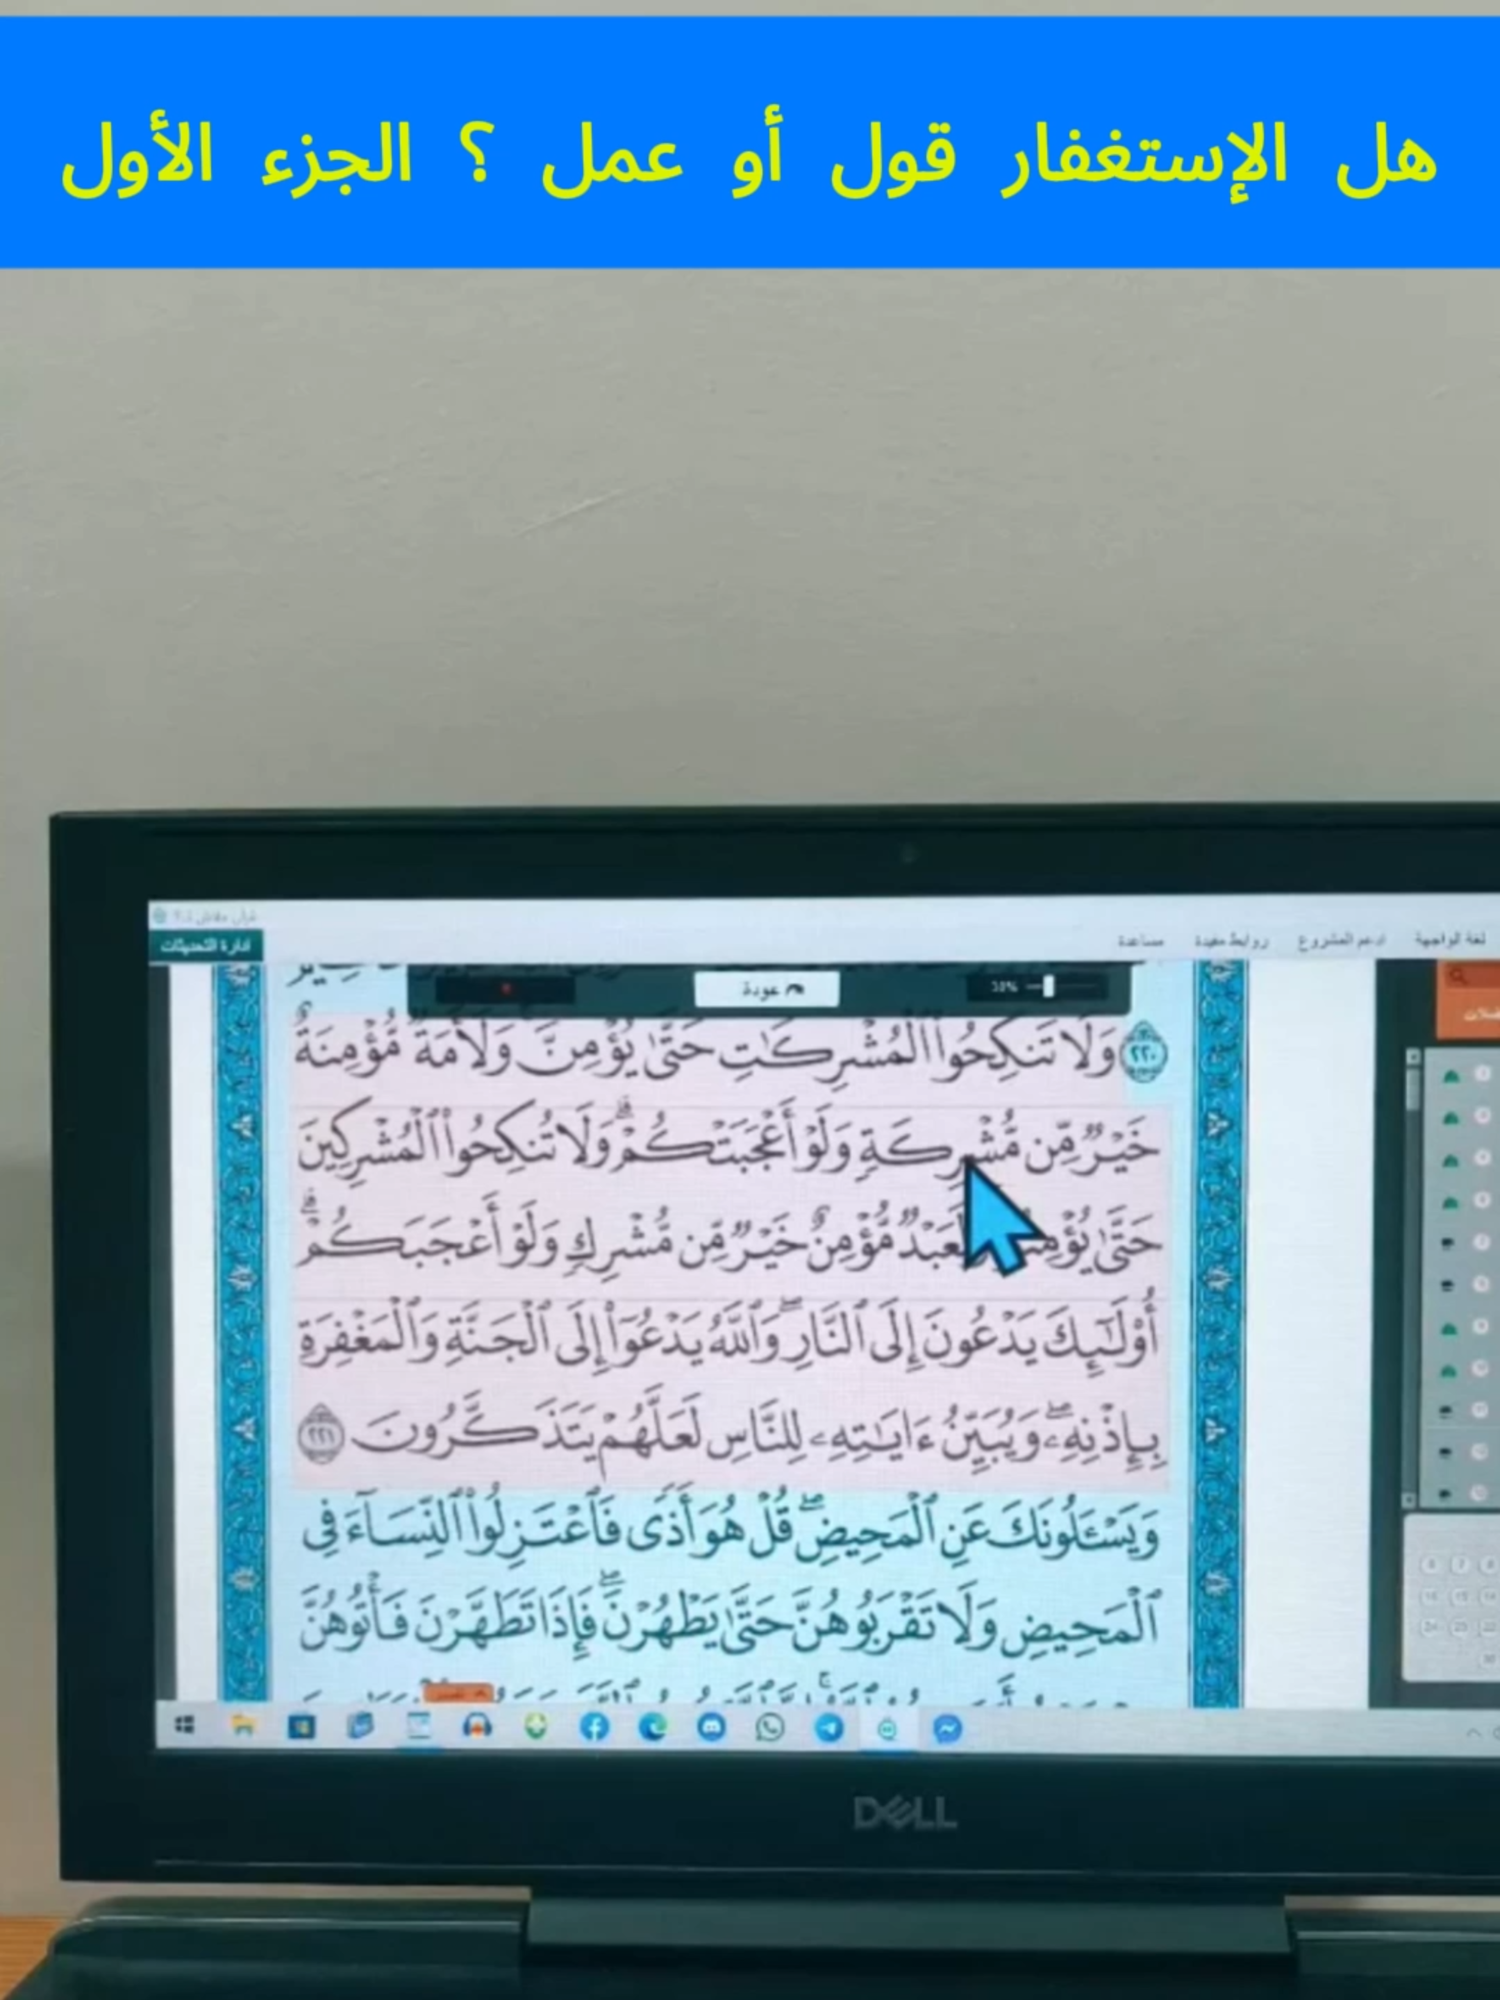 هل الإستغفار قول أو عمل ؟ الجزء الأول
لغة الواجهة
ادعم المشروع
روابط مفيدة
مساعدة
ادارة التحديثات
عودة
٢٢٠ وَلَا تَنكِحُوا۟ ٱلْمُشْرِكَٰتِ حَتَّىٰ يُؤْمِنَّ ۚ وَلَأَمَةٌ مُّؤْمِنَةٌ
خَيْرٌ مِّن مُّشْرِكَةٍ وَلَوْ أَعْجَبَتْكُمْ ۗ وَلَا تُنكِحُوا۟ ٱلْمُشْرِكِينَ
حَتَّىٰ يُؤْمِنُوا۟ ۚ وَلَعَبْدٌ مُّؤْمِنٌ خَيْرٌ مِّن مُّشْرِكٍ وَلَوْ أَعْجَبَكُمْ ۗ
أُو۟لَٰٓئِكَ يَدْعُونَ إِلَى ٱلنَّارِ ۖ وَٱللَّهُ يَدْعُوٓا۟ إِلَى ٱلْجَنَّةِ وَٱلْمَغْفِرَةِ
بِإِذْنِهِۦ ۖ وَيُبَيِّنُ ءَايَٰتِهِۦ لِلنَّاسِ لَعَلَّهُمْ يَتَذَكَّرُونَ ٢٢١
وَيَسْـَٔلُونَكَ عَنِ ٱلْمَحِيضِ ۖ قُلْ هُوَ أَذًى فَٱعْتَزِلُوا۟ ٱلنِّسَآءَ فِى
ٱلْمَحِيضِ وَلَا تَقْرَبُوهُنَّ حَتَّىٰ يَطْهُرْنَ ۖ فَإِذَا تَطَهَّرْنَ فَأْتُوهُنَّ
DELL